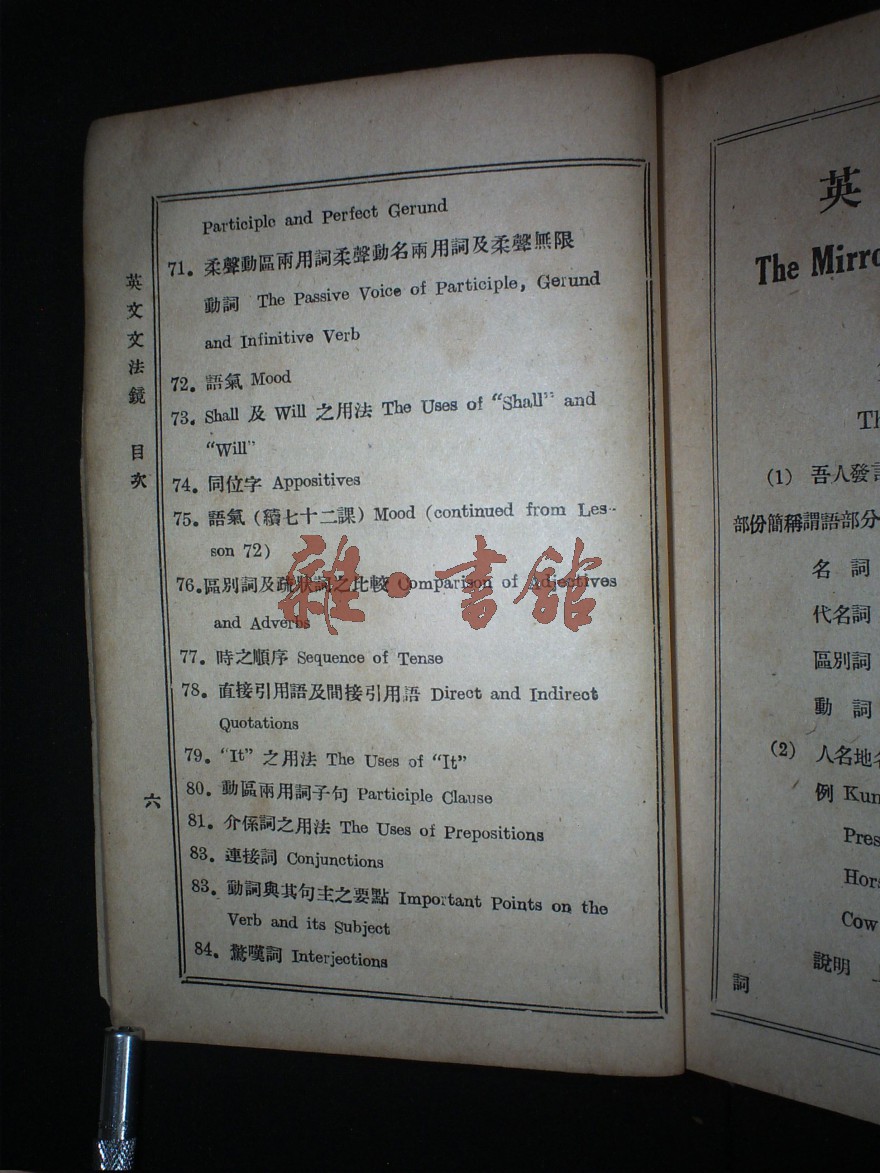 Participle and Perfect Gerund
71. 柔聲動區兩用詞柔聲動名兩用詞及柔聲無限
動詞 The Passive Voice of Participle, Gerund
and Infinitive Verb
72. 語氣 Mood
73. Shall 及 Will 之用法 The Uses of “Shall” and
“Will”
74. 同位字 Appositives
75. 語氣 (續七十二課) Mood (continued from Les-
son 72)
76. 區別詞及疏狀詞之比較 Comparison of Adjectives
and Adverbs
77. 時之順序 Sequence of Tense
78. 直接引用語及間接引用語 Direct and Indirect
Quotations
79. “It” 之用法 The Uses of “It”
80. 動區兩用詞子句 Participle Clause
81. 介係詞之用法 The Uses of Prepositions
83. 連接詞 Conjunctions
83. 動詞與其句主之要點 Important Points on the
Verb and its Subject
84. 驚嘆詞 Interjections
英文文法鏡 目次
六
雜·書館
英
The Mirro
Th
(1) 吾人發言
部份簡稱謂語部分
名詞
代名詞
區別詞
動詞
(2) 人名地名
例 Kun
Pres
Hors
Cow
說明
詞